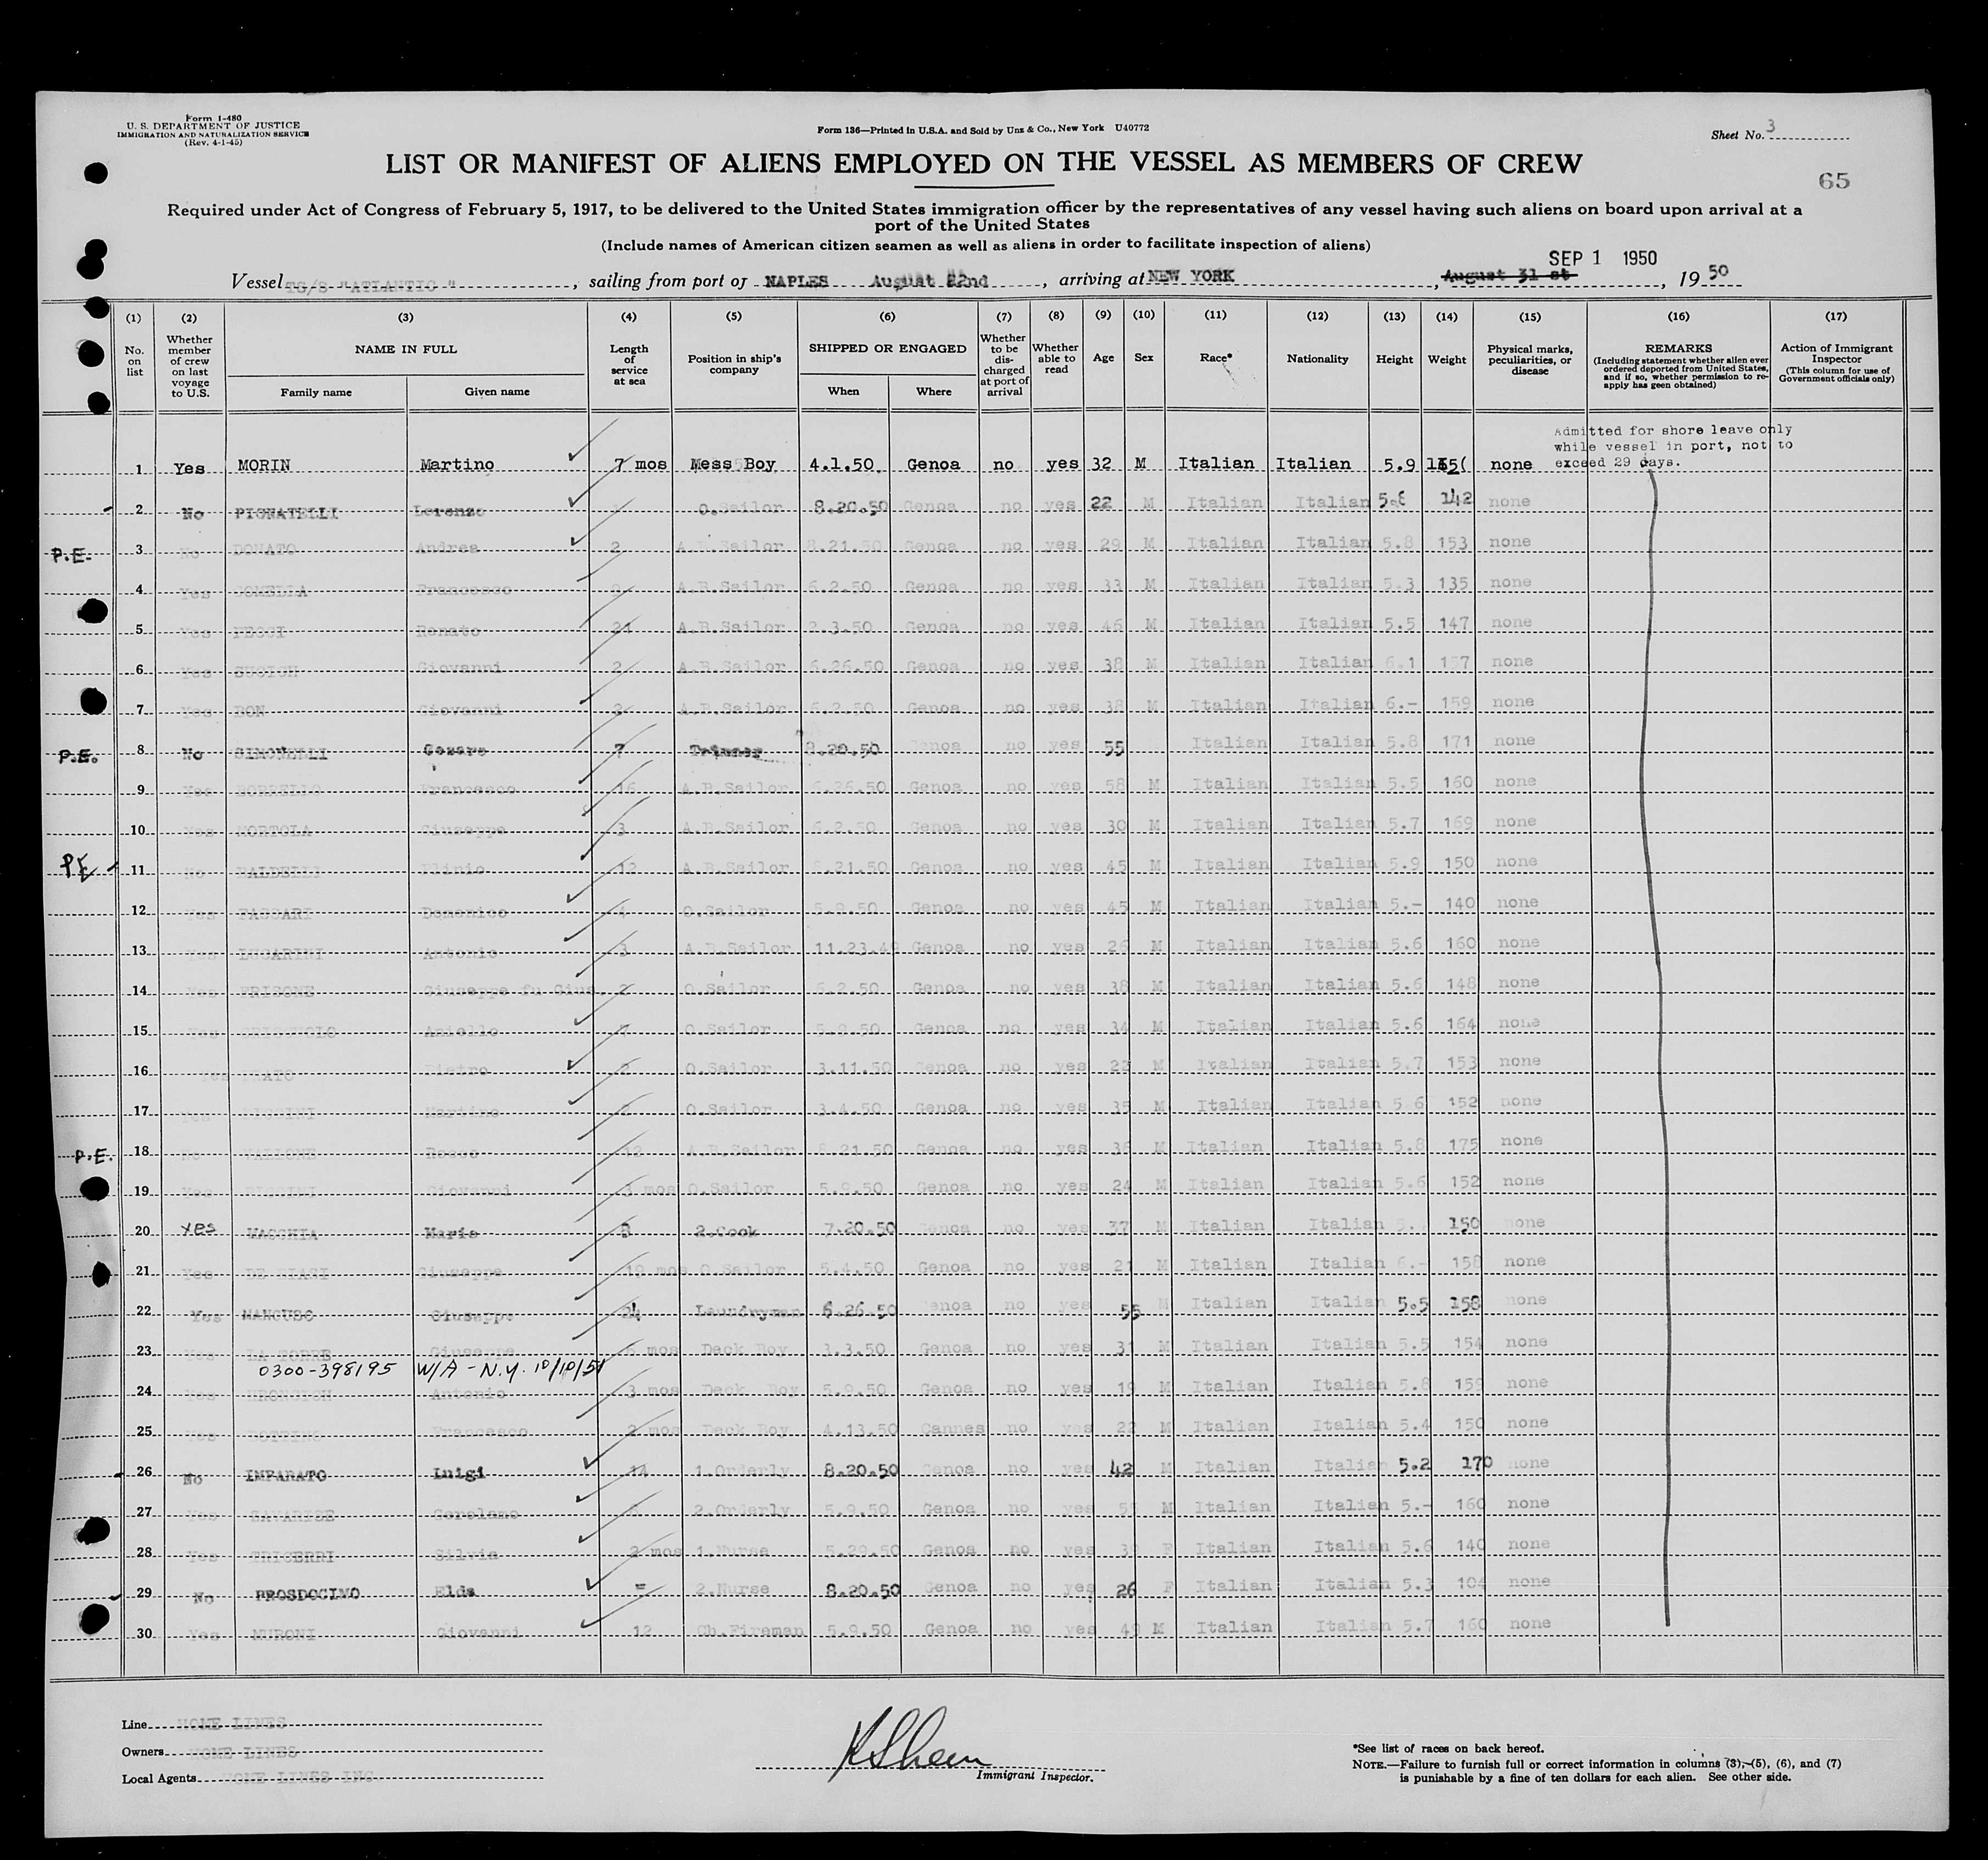 Form I-480
U. S. DEPARTMENT OF JUSTICE
IMMIGRATION AND NATURALIZATION SERVICE
(Rev. 4-1-45)
Form 136—Printed in U.S.A. and Sold by Unz & Co., New York U40772
Sheet No. 3
LIST OR MANIFEST OF ALIENS EMPLOYED ON THE VESSEL AS MEMBERS OF CREW
65
Required under Act of Congress of February 5, 1917, to be delivered to the United States immigration officer by the representatives of any vessel having such aliens on board upon arrival at a
port of the United States
(Include names of American citizen seamen as well as aliens in order to facilitate inspection of aliens)
SEP 1 1950
Vessel TG/S "ATLANTIC", sailing from port of NAPLES August 22nd, arriving at NEW YORK, August 31 st, 19 50
(1) (2) (3) (4) (5) (6) (7) (8) (9) (10) (11) (12) (13) (14) (15) (16) (17)
No. on list
Whether member of crew on last voyage to U.S.
NAME IN FULL
Family name Given name
Length of service at sea
Position in ship's company
SHIPPED OR ENGAGED
When Where
Whether to be discharged at port of arrival
Whether able to read
Age
Sex
Race*
Nationality
Height
Weight
Physical marks, peculiarities, or disease
REMARKS
(Including statement whether alien ever ordered deported from United States, and if so, whether permission to re-apply has geen obtained)
Action of Immigrant Inspector
(This column for use of Government officials only)
Admitted for shore leave only
while vessel in port, not to
exceed 29 days.
1 Yes MORIN Martino 7 mos Mess Boy 4.1.50. Genoa no yes 32 M Italian Italian 5.9 none
2 No PIGNATELLI Lorenzo O.Sailor 8.20.50 Genoa no yes 22 M Italian Italian 5.8 142 none
P.E. 3 No DONATO Andrea 2 A.B.Sailor 8.21.50 Genoa no yes 29 M Italian Italian 5.8 153 none
4 Yes Francesco A.B.Sailor 6.2.50 Genoa no yes 33 M Italian Italian 5.3 135 none
5 Yes Renato 24 A.B.Sailor 2.3.50 Genoa no yes 46 M Italian Italian 5.5 147 none
6 Yes Giovanni 2 A.B.Sailor 6.26.50 Genoa no yes 38 M Italian Italian 6.1 157 none
7 Yes Giovanni 2 A.B.Sailor 6.2.50 Genoa no yes 38 M Italian Italian 6.- 159 none
P.E. 8 No SIMONELLI Cesare 7 Trimmer 8.20.50 Genoa no yes 55 Italian Italian 5.8 171 none
9 Yes BORRELLO Francesco 16 A.B.Sailor 6.26.50 Genoa no yes 58 M Italian Italian 5.5 160 none
10 Yes MORTOLA Giuseppe 3 A.B.Sailor 6.2.50 Genoa no yes 30 M Italian Italian 5.7 169 none
PE 11 No BALDELLI Plinio 12 A.B.Sailor 8.21.50 Genoa no yes 45 M Italian Italian 5.9 150 none
12 Yes Domenico O.Sailor 5.9.50 Genoa no yes 45 M Italian Italian 5.- 140 none
13 Yes LUCARINI Antonio 3 A.B.Sailor 11.23.49 Genoa no yes 26 M Italian Italian 5.6 160 none
14 Yes FRISONE Giuseppe fu Gius. 2 O.Sailor 6.2.50 Genoa no yes 38 M Italian Italian 5.6 148 none
15 Yes Aniello O.Sailor 5.9.50 Genoa no yes 34 M Italian Italian 5.6 164 none
16 Yes Pietro O.Sailor 3.11.50 Genoa no yes 23 M Italian Italian 5.7 153 none
17 Yes Martino O.Sailor 3.4.50 Genoa no yes 35 M Italian Italian 5.6 152 none
P.E. 18 No VALLONE Rocco 12 A.B.Sailor 8.21.50 Genoa no yes 36 M Italian Italian 5.8 175 none
19 Yes Giovanni 3 mos O.Sailor 5.9.50 Genoa no yes 24 M Italian Italian 5.6 152 none
20 yes MACCHIA Mario 8 2.Cook 7.20.50 Genoa no yes 37 M Italian Italian 5. 150 none
21 Yes DE BIASI Giuseppe 19 mos O.Sailor 5.4.50 Genoa no yes 21 M Italian Italian 6.- 158 none
22 Yes MANCUSO Giuseppe 24 Laundryman 6.26.50 Genoa no yes 55 M Italian Italian 5.5 158 none
23 Yes LA TORRE Giuseppe mos Deck Boy 3.3.50 Genoa no yes 31 M Italian Italian 5.5 154 none
0300-398195 W/A - N.Y. 10/10/51
24 Yes Antonio 3 mos Deck Boy 5.9.50 Genoa no yes 19 M Italian Italian 5.8 159 none
25 Yes Francesco 2 mos Deck Boy 4.13.50 Cannes no yes 22 M Italian Italian 5.4 150 none
26 No IMPARATO Luigi 14 1.Orderly 8.20.50 Genoa no yes 42 M Italian Italian 5.2 170 none
27 Yes SAVARESE Gerolamo 2.Orderly 5.9.50 Genoa no yes M Italian Italian 5.- 160 none
28 Yes TRICERRI Silvia 2 mos 1.Nurse 5.29.50 Genoa no yes F Italian Italian 5.6 140 none
29 No PROSDOCIMO Elda = 2.Nurse 8.20.50 Genoa no yes 26 F Italian Italian 5.3 104 none
30 Yes MURONI Giovanni 12 Ch.Fireman 5.9.50 Genoa no yes 49 M Italian Italian 5.7 160 none
Line HOME LINES
Owners HOME LINES
Local Agents HOME LINES INC.
Immigrant Inspector.
*See list of races on back hereof.
NOTE.—Failure to furnish full or correct information in columns (3), (5), (6), and (7)
is punishable by a fine of ten dollars for each alien. See other side.